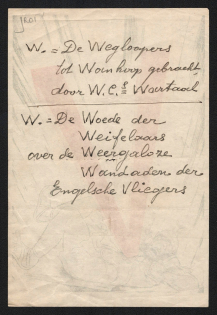 W. = De Wegloopers
tot Wanhoop gebracht,
door W.C.S Wartaal
W. = De Woede der
Weifelaars
over de Weergaloze
Wandaden der
Engelsche Vliegers